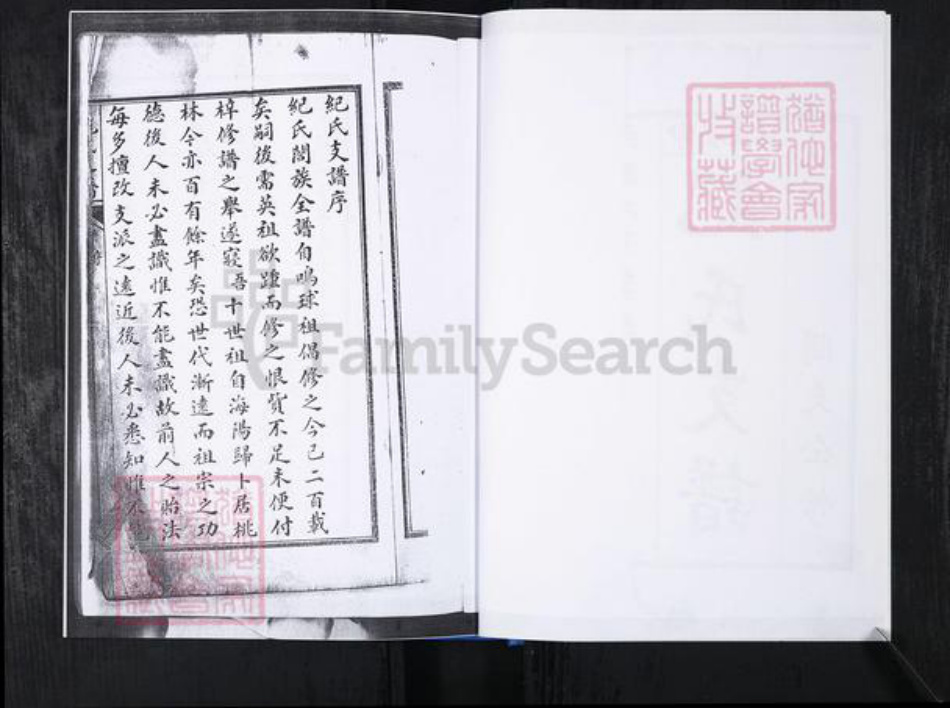 紀氏支譜序
紀氏闔族全譜自鳴球祖倡修之今已二百載
矣嗣後需英祖欲踵而修之恨貲不足未便付
梓修譜之舉遂寢吾十世祖自海陽歸卜居桃
林今亦百有餘年矣恐世代漸遠而祖宗之功
德後人未必盡識惟不能盡識故前人之貽法
每多擅改支派之遠近後人未必悉知惟不
猶他家
譜學會
收藏
FamilySearch